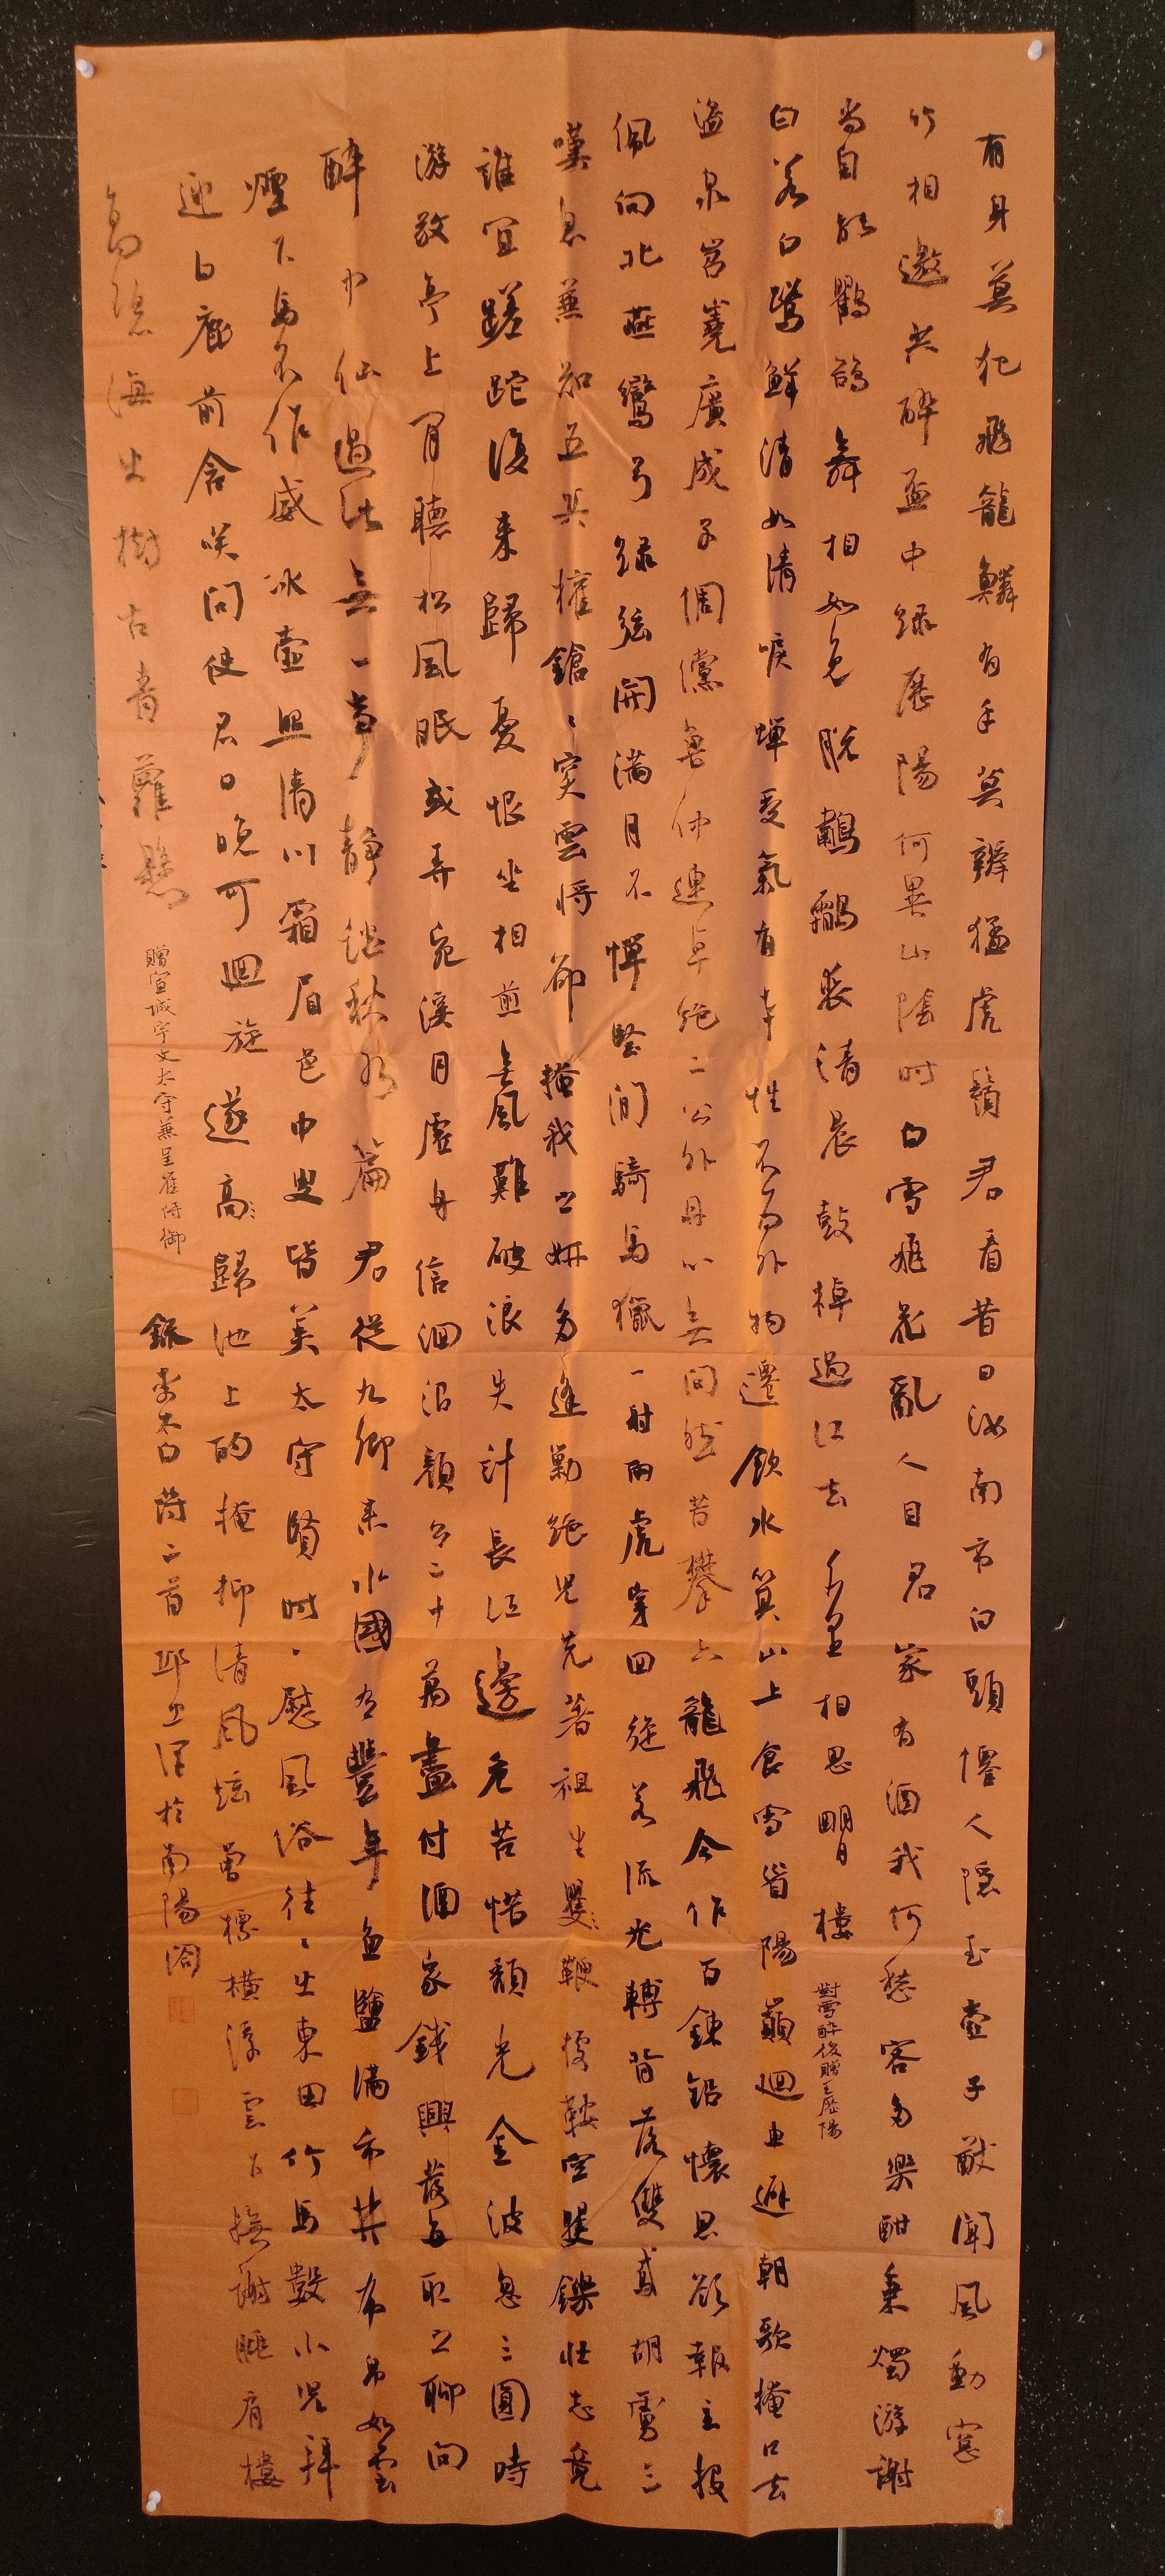 有身莫犯飛龍鱗有手莫辮猛虎鬚君看昔日汝南市白頭僊人隱玉壺子猷聞風動窓
竹相邀共醉盃中綠歷陽何異山陰時白雪飛花亂人目君家有酒我何愁客多樂酣秉燭游謝
尚自能鸜鵒舞相如免脫鷫鸘裘清晨鼓棹過江去千里相思明月樓
對雪醉後贈王歷陽
白若白鷺鮮清如清唳蟬受氣有本性不為外物遷飲水箕山上食雪首陽巔迴車避朝歌掩口去
盜泉岧嶤廣成子倜儻魯仲連卓絕二公外丹心無間然昔攀六龍飛今作百鍊鉛懷恩欲報主投
佩向北燕彎弓綠弦開滿月不憚堅閒騎馬獵一射兩虎穿回旋若流光轉背落雙鳶胡虜三
嘆息兼知五兵權鎗〻突雲將卻掩我之妍多逢勦絕兒先著祖生矍〻鞭據鞍空矍鑠壯志竟
誰宣蹉跎復來歸憂恨坐相煎無風難破浪失計長江邊危苦惜頹光金波忽三圓時
游敬亭上閒聽松風眠或弄宛溪月虛舟信洄沿顏公二十萬盡付酒家錢興發每取之聊向
醉中仙過此無一事靜談秋水篇君從九卿來水國有豐年魚鹽滿市井布帛如雲
煙下馬不作威冰壺照清川霜眉邑中叟皆美太守賢時〻慰風俗往〻出東田竹馬數小兒拜
迎白鹿前含笑問使君日晚可迴旋遂高〻歸池上酌掩抑清風弦曾標橫浮雲下撫謝朓肩樓
高碧海出樹古青蘿懸
贈宣城宇文太守兼呈崔侍御
錄李太白詩二首邱卫泽於南陽閣